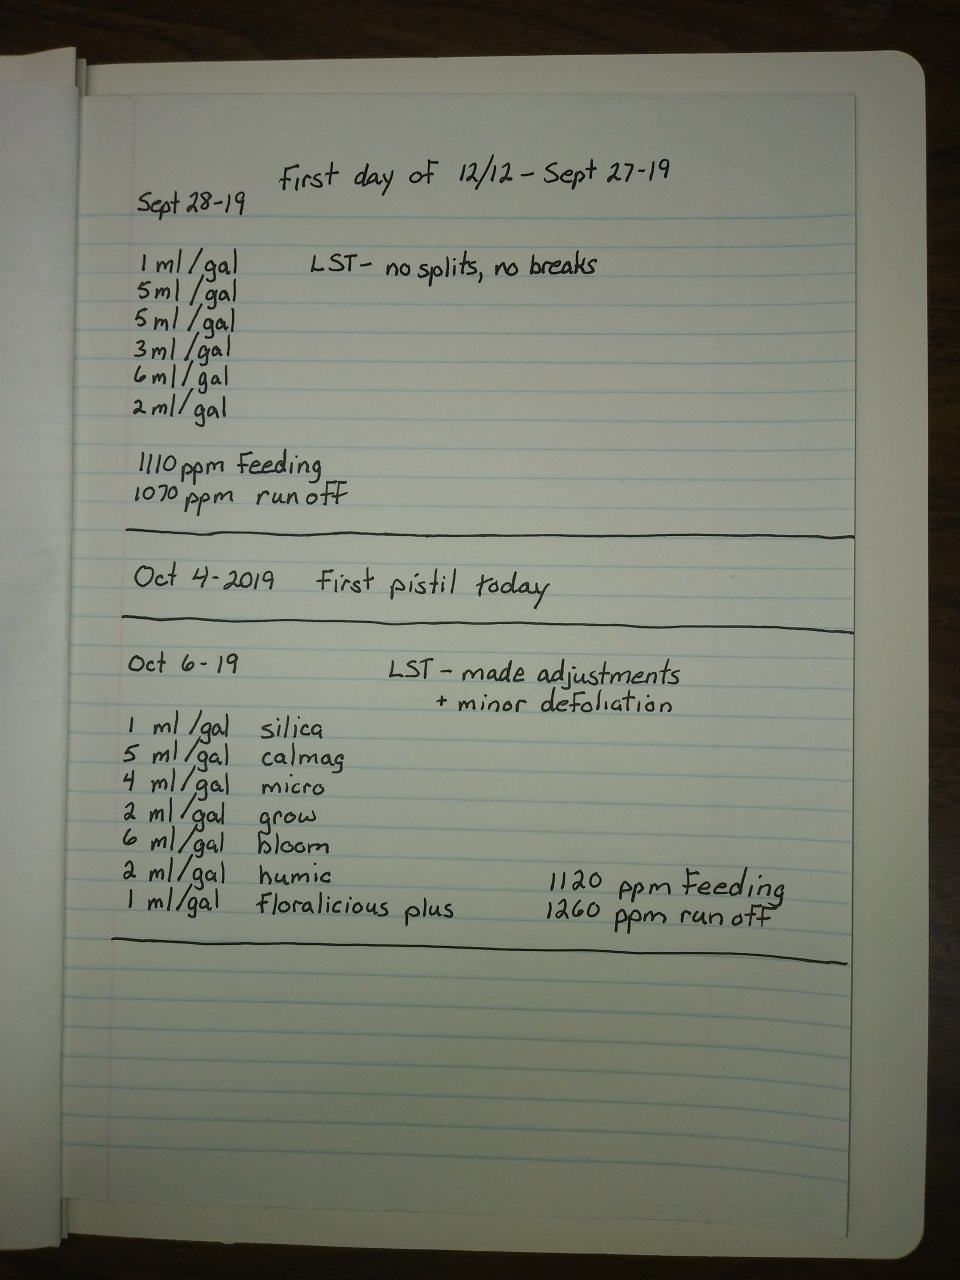 First day of 12/12 - Sept 27-19
Sept 28-19
1 ml/gal LST- no splits, no breaks
5 ml/gal
5 ml/gal
3 ml/gal
6 ml/gal
2 ml/gal
1110 ppm Feeding
1070 ppm run off
Oct 4-2019 First pistil today
Oct 6-19 LST - made adjustments
+ minor defoliation
1 ml/gal silica
5 ml/gal calmag
4 ml/gal micro
2 ml/gal grow
6 ml/gal bloom
2 ml/gal humic 1120 ppm Feeding
1 ml/gal floralicious plus 1260 ppm run off